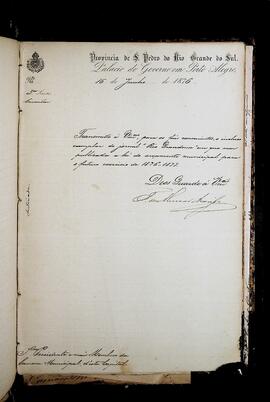 Provincia de S. Pedro do Rio Grande do Sul.
Palacio do Governo em Porto Alegre,
16 de Junho de 1876
Transmitto á Vmcs para os fins convenientes, o incluso
exemplar do jornal "Rio Grandense" em que vem
publicada a lei do orçamento municipal para
o futuro exercicio de 1876-1877.
Deos Guarde á Vmcs
Presidente e mais Membros da
Camara Municipal desta Capital.